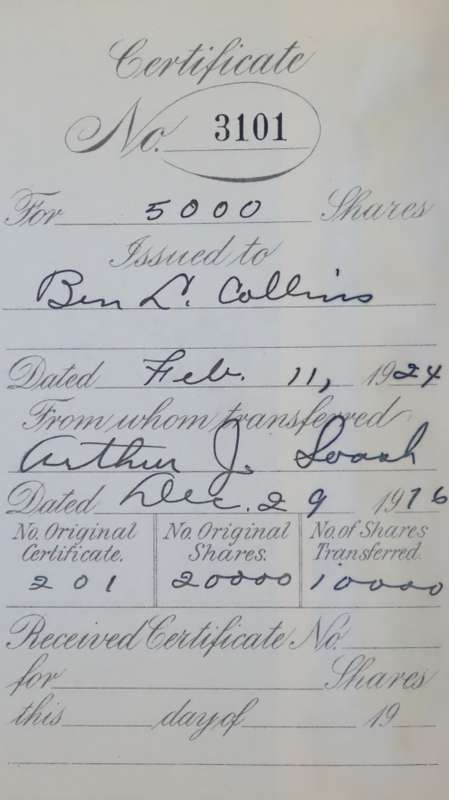 Certificate
No. 3101
For 5000 Shares
Issued to
Ben L. Collins
Dated Feb. 11, 1924
From whom transferred
Arthur J.
Dated Dec. 29 1916
No. Original Certificate. No. Original Shares. No. of Shares Transferred.
201 20000 10000
Received Certificate No.
for Shares
this day of 19